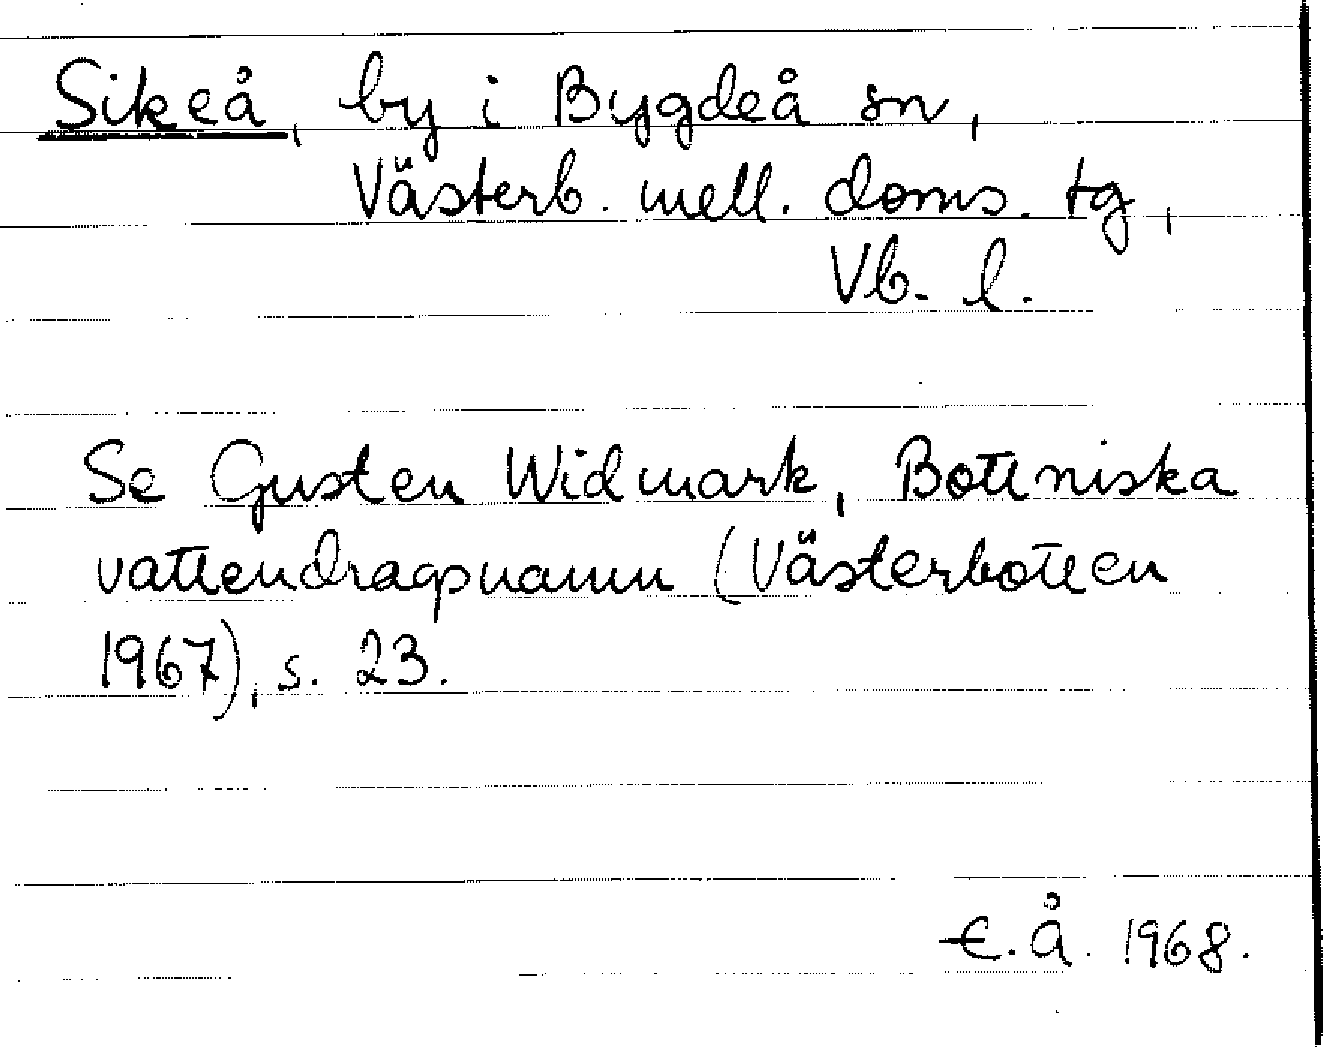 Sikeå, by i Bygdeå sn,
Västerb. mell. doms. tg,
Vb. l.
Se Gusten Widmark, Bottniska
vattendragsnamn (Västerbotten
1967), s. 23.
E. Å. 1968.